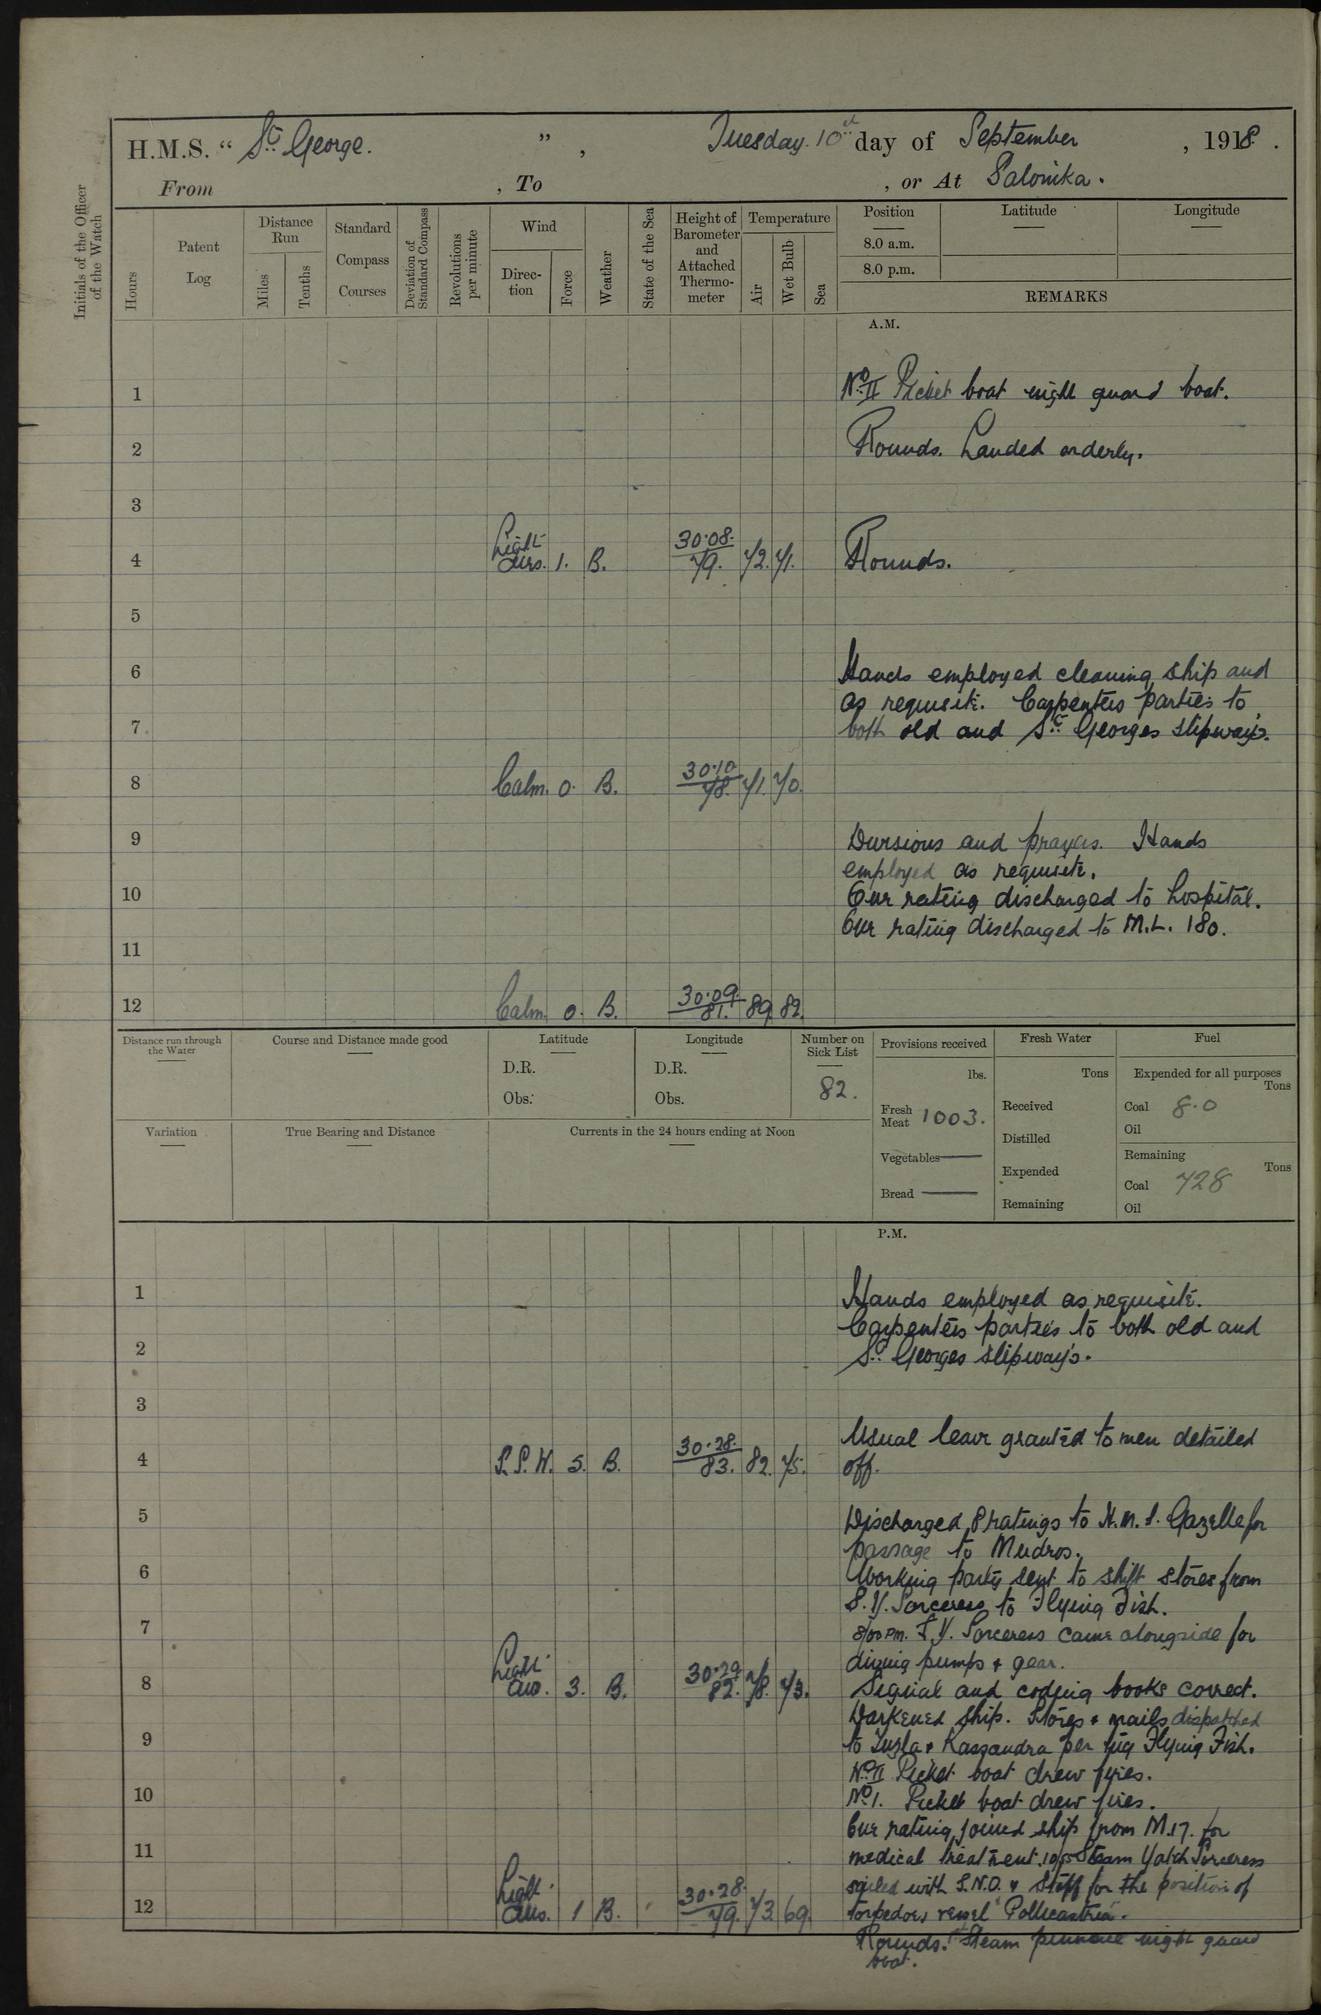 H.M.S. “ St. George. ” , Tuesday. 10th day of September , 1918 .
From , To , or At Salonika.
Initials of the Officer of the Watch
Hours
Patent Log
Distance Run
Miles
Tenths
Standard Compass Courses
Deviation of Standard Compass
Revolutions per minute
Wind
Direc-tion
Force
Weather
State of the Sea
Height of Barometer and Attached Thermo-meter
Temperature
Air
Wet Bulb
Sea
Position Latitude Longitude
8.0 a.m.
8.0 p.m.
REMARKS
A.M.
1 No. II Picket boat night guard boat.
2 Rounds. Landed orderly.
3
4 Light airs. 1. B. 30.08. 79. 72. 71. Rounds.
5
6 Hands employed cleaning ship and
as requisite. Carpenters parties to
7 both old and St. Georges slipway's.
8 Calm. 0. B. 30.10 78. 71. 70.
9 Divisions and prayers. Hands
employed as requisite.
10 One rating discharged to hospital.
One rating discharged to M.L. 180.
11
12 Calm. 0. B. 30.09. 81. 89. 82.
Distance run through the Water
Course and Distance made good
Latitude
D.R.
Obs.
Longitude
D.R.
Obs.
Number on Sick List
82.
Provisions received
lbs.
Fresh Meat 1003.
Vegetables —
Bread —
Fresh Water
Tons
Received
Distilled
Expended
Remaining
Fuel
Expended for all purposes
Tons
Coal 8.0
Oil
Remaining
Tons
Coal 728
Oil
Variation
True Bearing and Distance
Currents in the 24 hours ending at Noon
P.M.
1 Hands employed as requisite.
Carpenters parties to both old and
2 St. Georges slipway's.
3
Usual leave granted to men detailed
4 S.S.W. 5. B. 30.28. 83. 82. 75. off.
5 Discharged 8 ratings to H.M.S. Gazelle for
passage to Mudros.
6 Working party sent to shift stores from
S.Y. Sorceress to Flying Fish.
7 8/00 PM. S.Y. Sorceress came alongside for
diving pumps & gear.
8 Light airs. 3. B. 30.29 82. 78. 73. Signal and coding books correct.
Darkened ship. Stores & mails dispatched
9 to Tuzla & Kassandra per tug Flying Fish.
No. II Picket boat drew fires.
10 No. 1. Picket boat drew fires.
One rating joined ship from M.17. for
11 medical treatment. Steam Yatch Sorceress
sailed with S.N.O. & Staff for the position of
12 Light airs. 1 B. 30.28. 79. 73. 69. torpedoes vessel "Pollicastria".
Rounds. Steam pinnace night guard
boat.